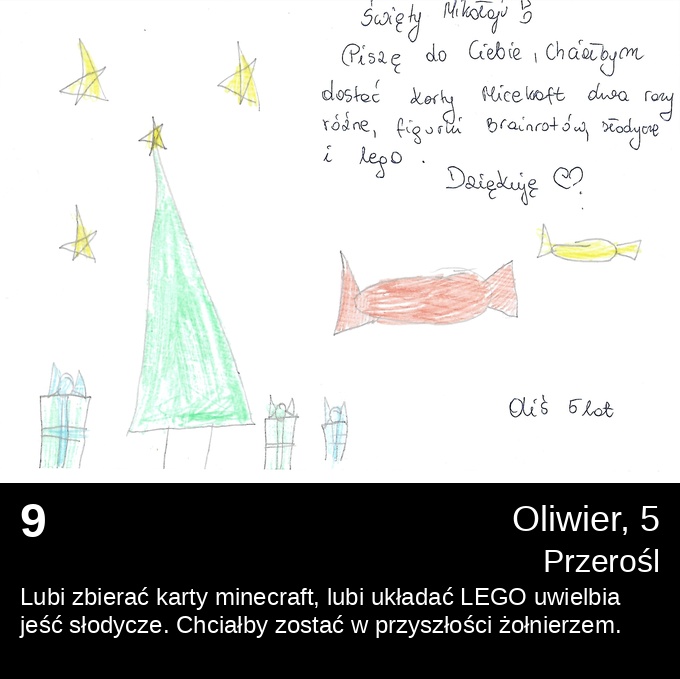 Święty Mikołaju
Piszę do Ciebie, Chciałbym
dostać karty Micekraft dwa razy
różne, figurki Brainrotów, słodycze
i lego.
Dziękuję ♡
Oliś 5 lat
9
Oliwier, 5
Przerośl
Lubi zbierać karty minecraft, lubi układać LEGO uwielbia
jeść słodycze. Chciałby zostać w przyszłości żołnierzem.